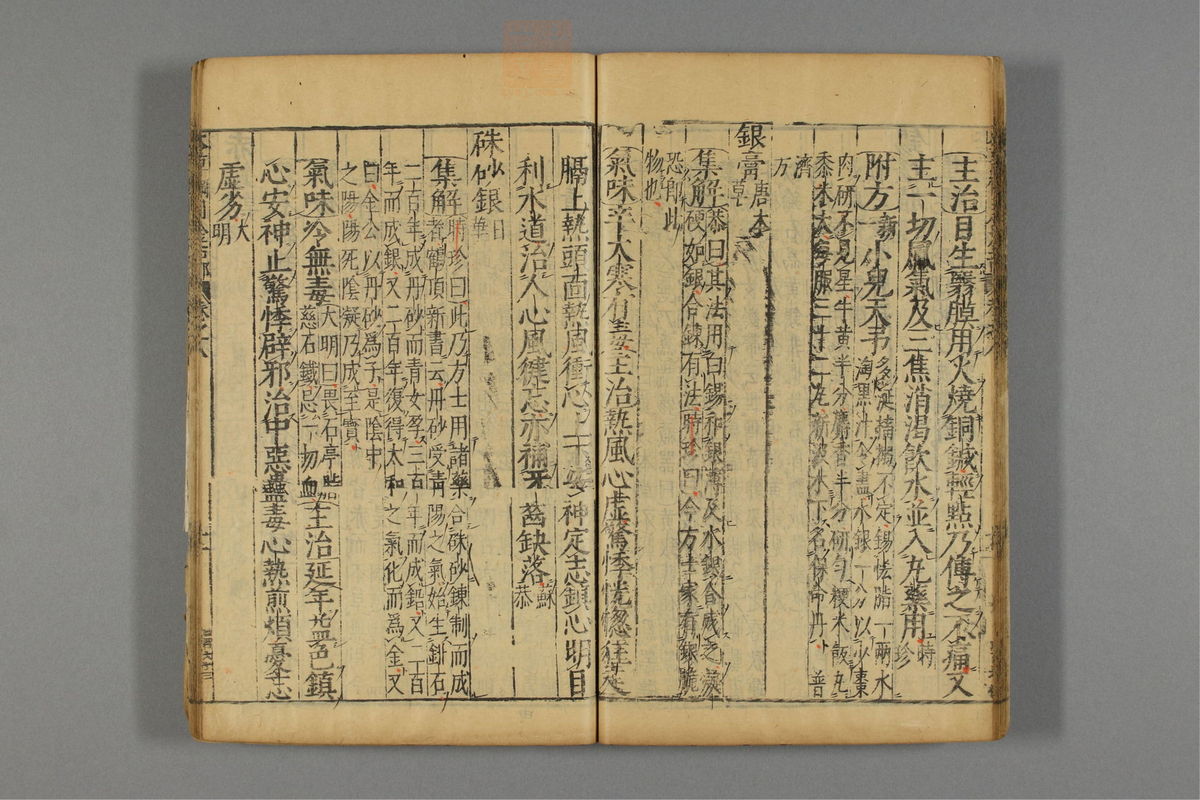 主治目生翳膜用火燒銅鍼輕點乃傅之不痛又
主一切風氣及三焦消渴飲水並入丸藥用時珍
附方新一小兒天弔多涎搐搦不定錫恡脂一兩水淘黑汁令盡水銀一分以少棗
肉研不見星牛黃半分麝香半分研勻粳米飯丸
黍米大每服三十二丸新汲水下名保命丹普
濟方
銀膏唐本草
集解恭曰其法用白錫和銀薄及水銀合成之凝
硬如銀合鍊有法時珍曰今方士家有銀脆
恐即此
物也
氣味辛大寒有毒主治熱風心虛驚悸恍惚狂走
膈上熱頭面熱風衝心上下安神定志鎮心明目
利水道治人心風健忘亦補牙齒缺落蘇恭
硃砂銀日華
集解時珍曰此乃方士用諸藥合硃砂鍊制而成
者鶴頂新書云丹砂受青陽之氣始生鉛石
二百年成丹砂而青女孕三百年而成鉛又二百
年而成銀又二百年復得太和之氣化而為金又
曰金公以丹砂為子是陰中
之陽陽死陰凝乃成至寶
氣味冷無毒大明曰畏石亭脂慈石鐵忌一切血主治延年益色鎮
心安神止驚悸辟邪治中惡蠱毒心熱煎煩憂忘
虛劣大明